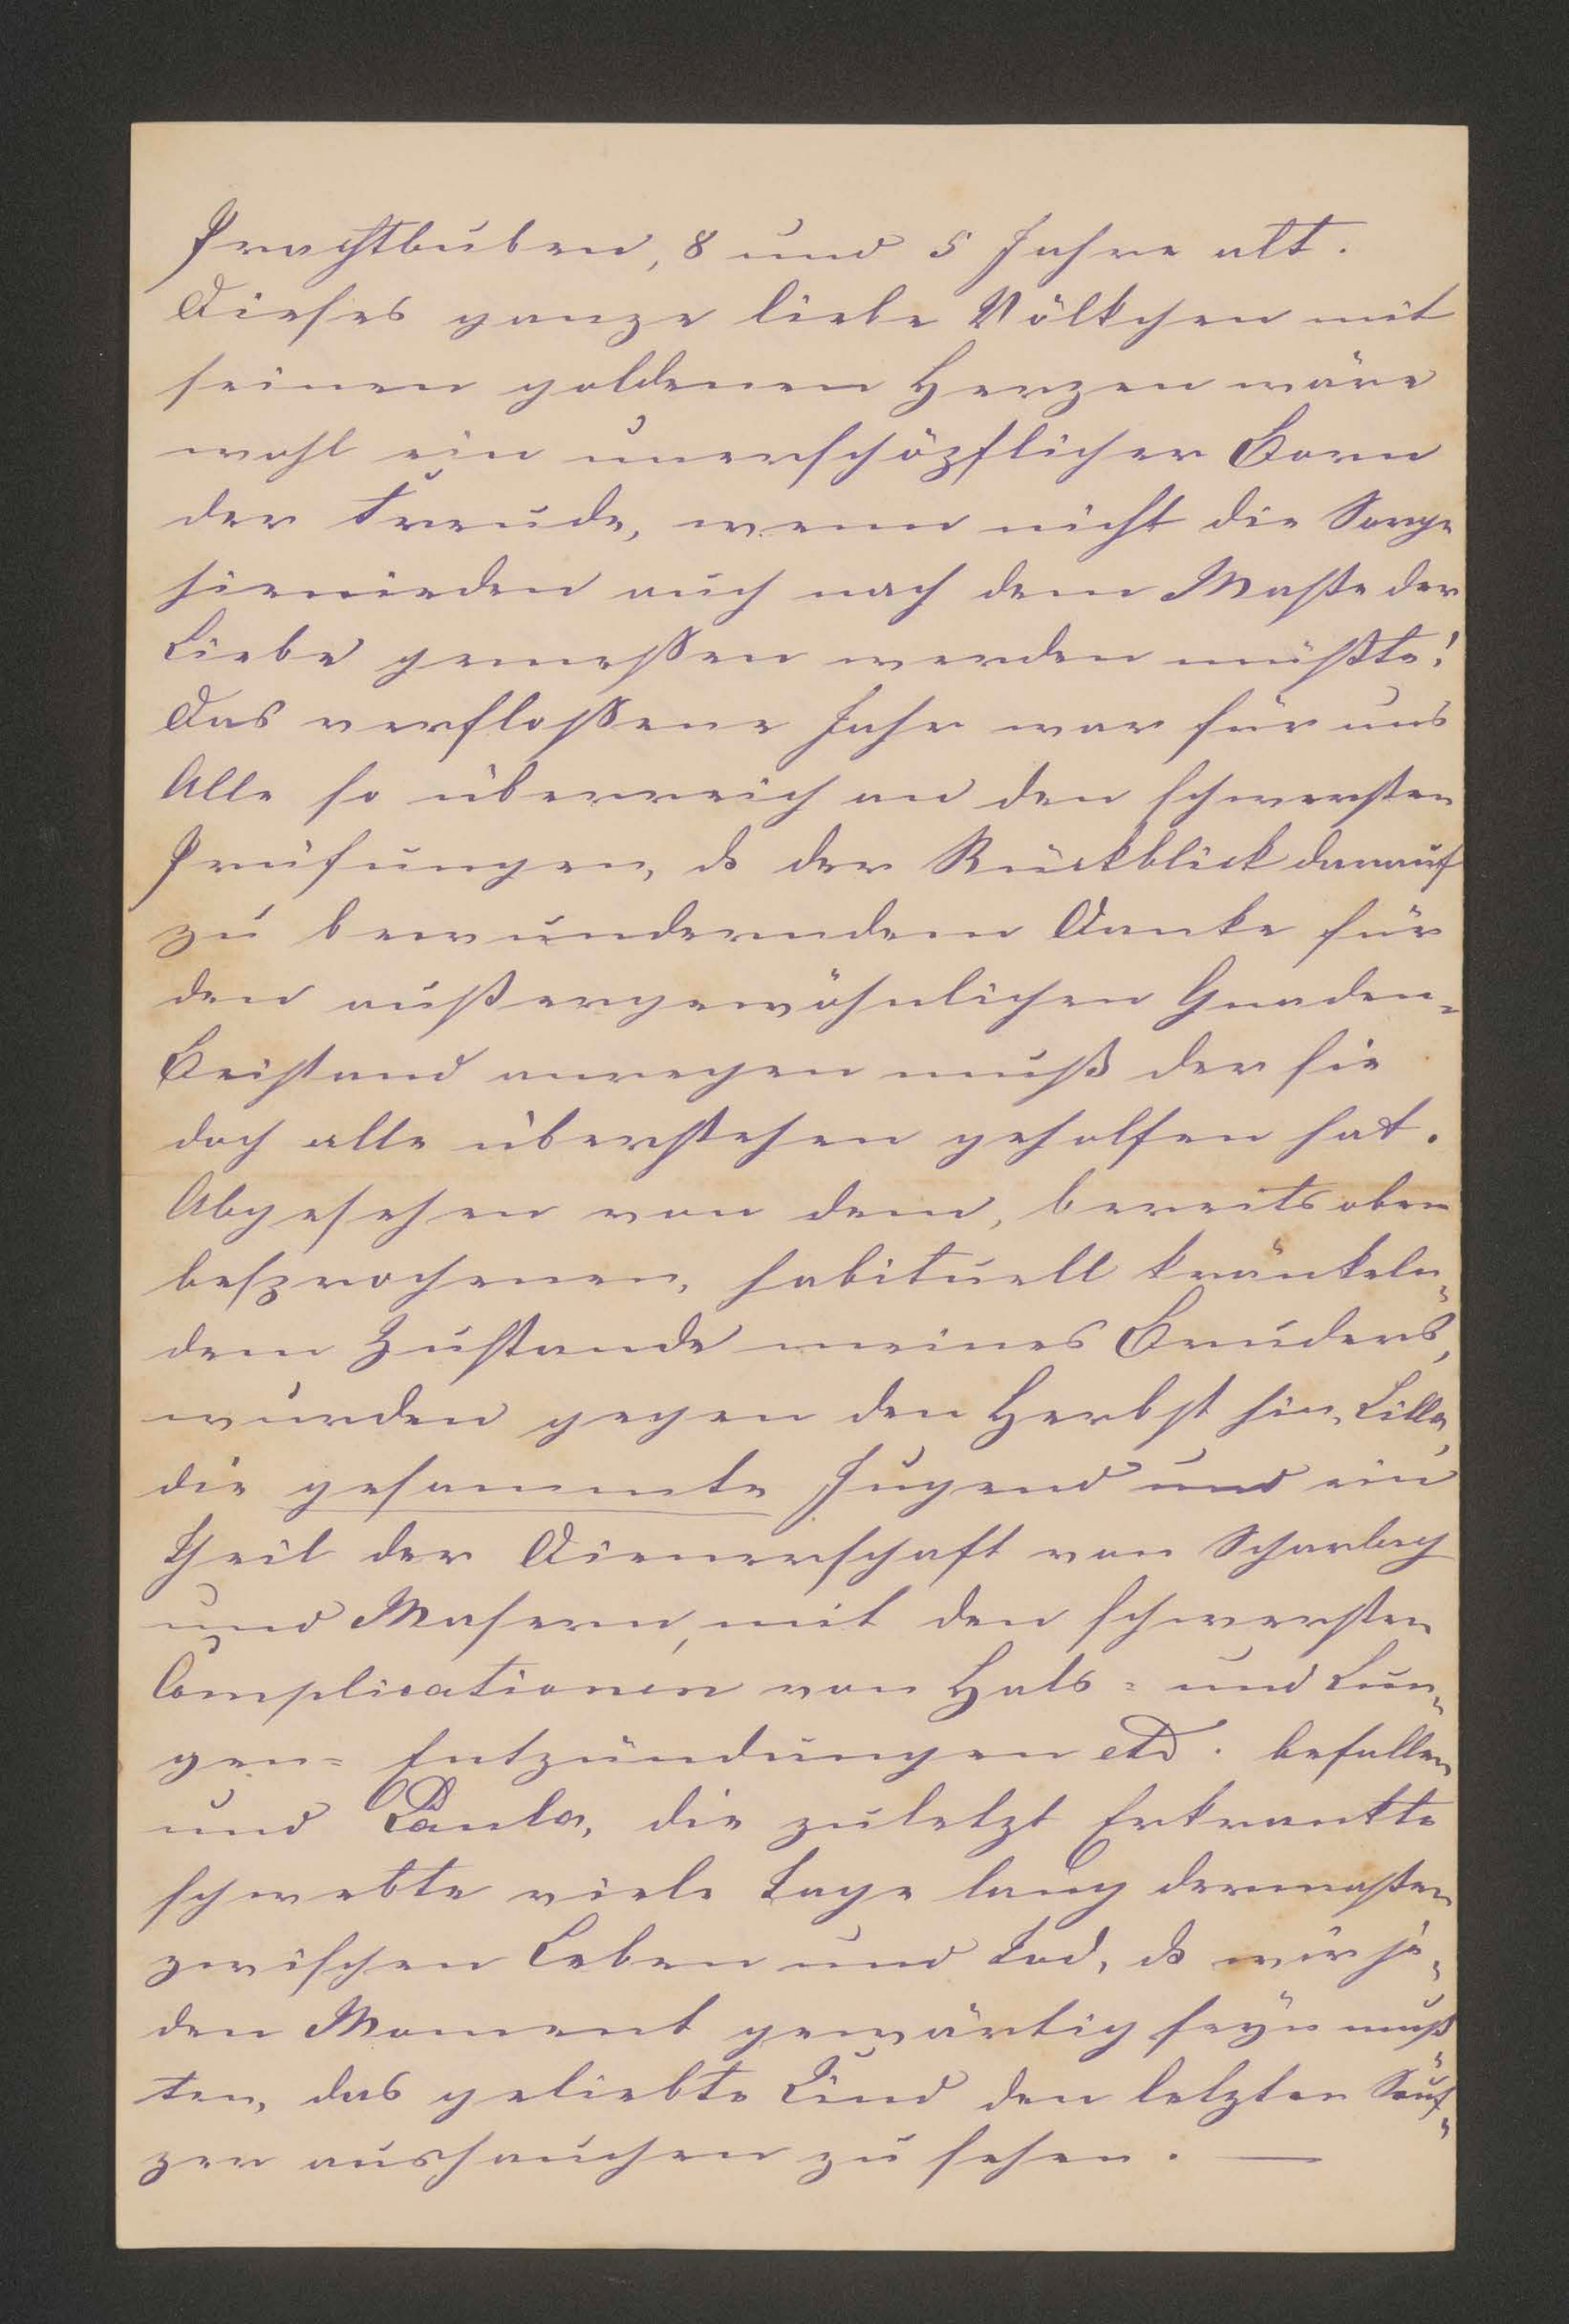 Prachtbuben, 8 und 5 Jahre alt.
Dieses ganze liebe Völkchen mit
seinen goldenen Herzen wäre
wohl ein unerschöpflicher Born
der Freude, wenn nicht die Sorge
hienieden auch nach dem Maße der
Liebe gemessen werden müßte!
Das verflossene Jahr war für uns
Alle so überreich an den schwersten
Prüfungen, ds der Rückblick darauf
zu bewunderndem Danke für
den außergewöhnlichen Gnaden-
Beistand anregen muß der sie
doch alle überstehen geholfen hat.
Abgesehen von dem, bereits oben
besprochenen, habituell kränkeln-
dem Zustande meines Bruders,
wurden gegen den Herbst hin, Lilla,
die gesammte Jugend und ein
Theil der Dienerschaft von Scharlach
und Masern, mit den schwersten
Complicationen von Hals- und Lun-
gen-Entzündungen etc. befallen
und Paula, die zuletzt Erkrankte
schwebte viele Tage lang dermaßen
zwischen Leben und Tod, ds wir je-
den Moment gewärtig seyn muß-
ten, das geliebte Kind den letzten Seuf-
zer aushauchen zu sehen. —